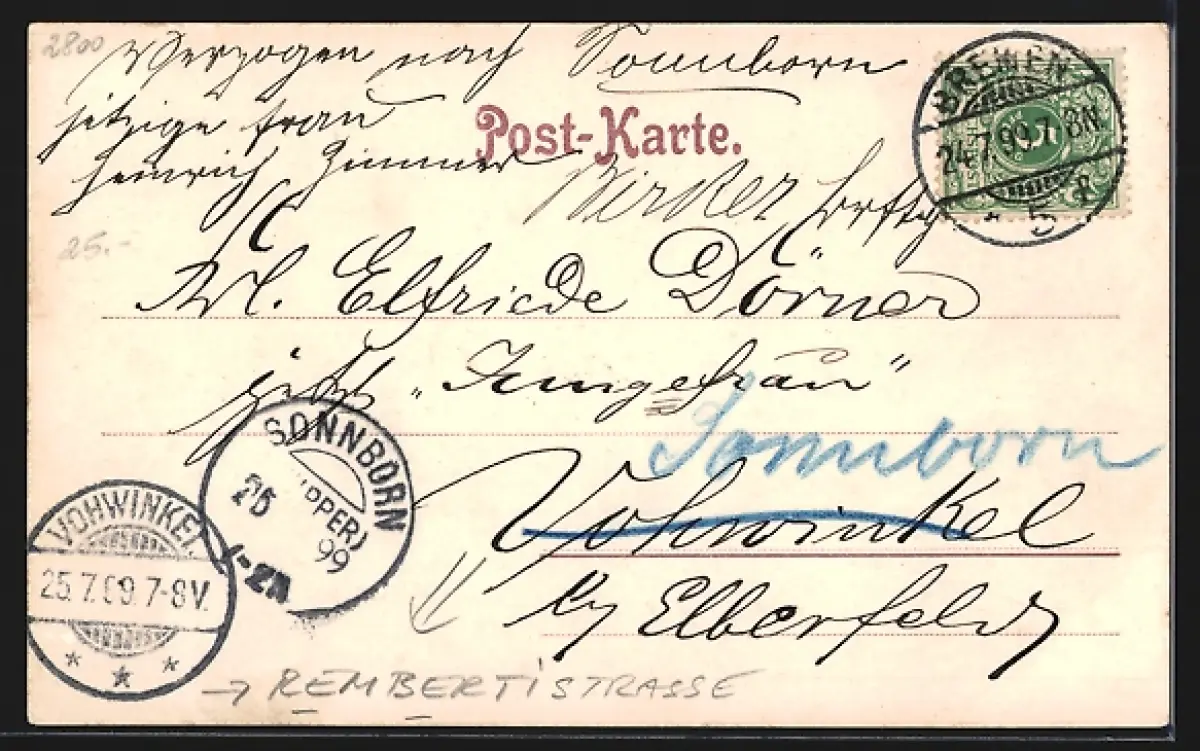 2800
Verzogen nach Sonnborn
jetzige Frau
Heinrich Zimmer
Post-Karte.
BREMEN
24.7.99.7-8N.
* 5 f
25.-
Frl. Elfriede Dörner
jetzt „Jungefrau"
Sonnborn
Vohwinkel
b/ Elberfeld
SONNBORN
(WUPPER)
25 99
1-2N
VOHWINKEL
25.7.99.7-8V.
* * *
→ REMBERTISTRASSE